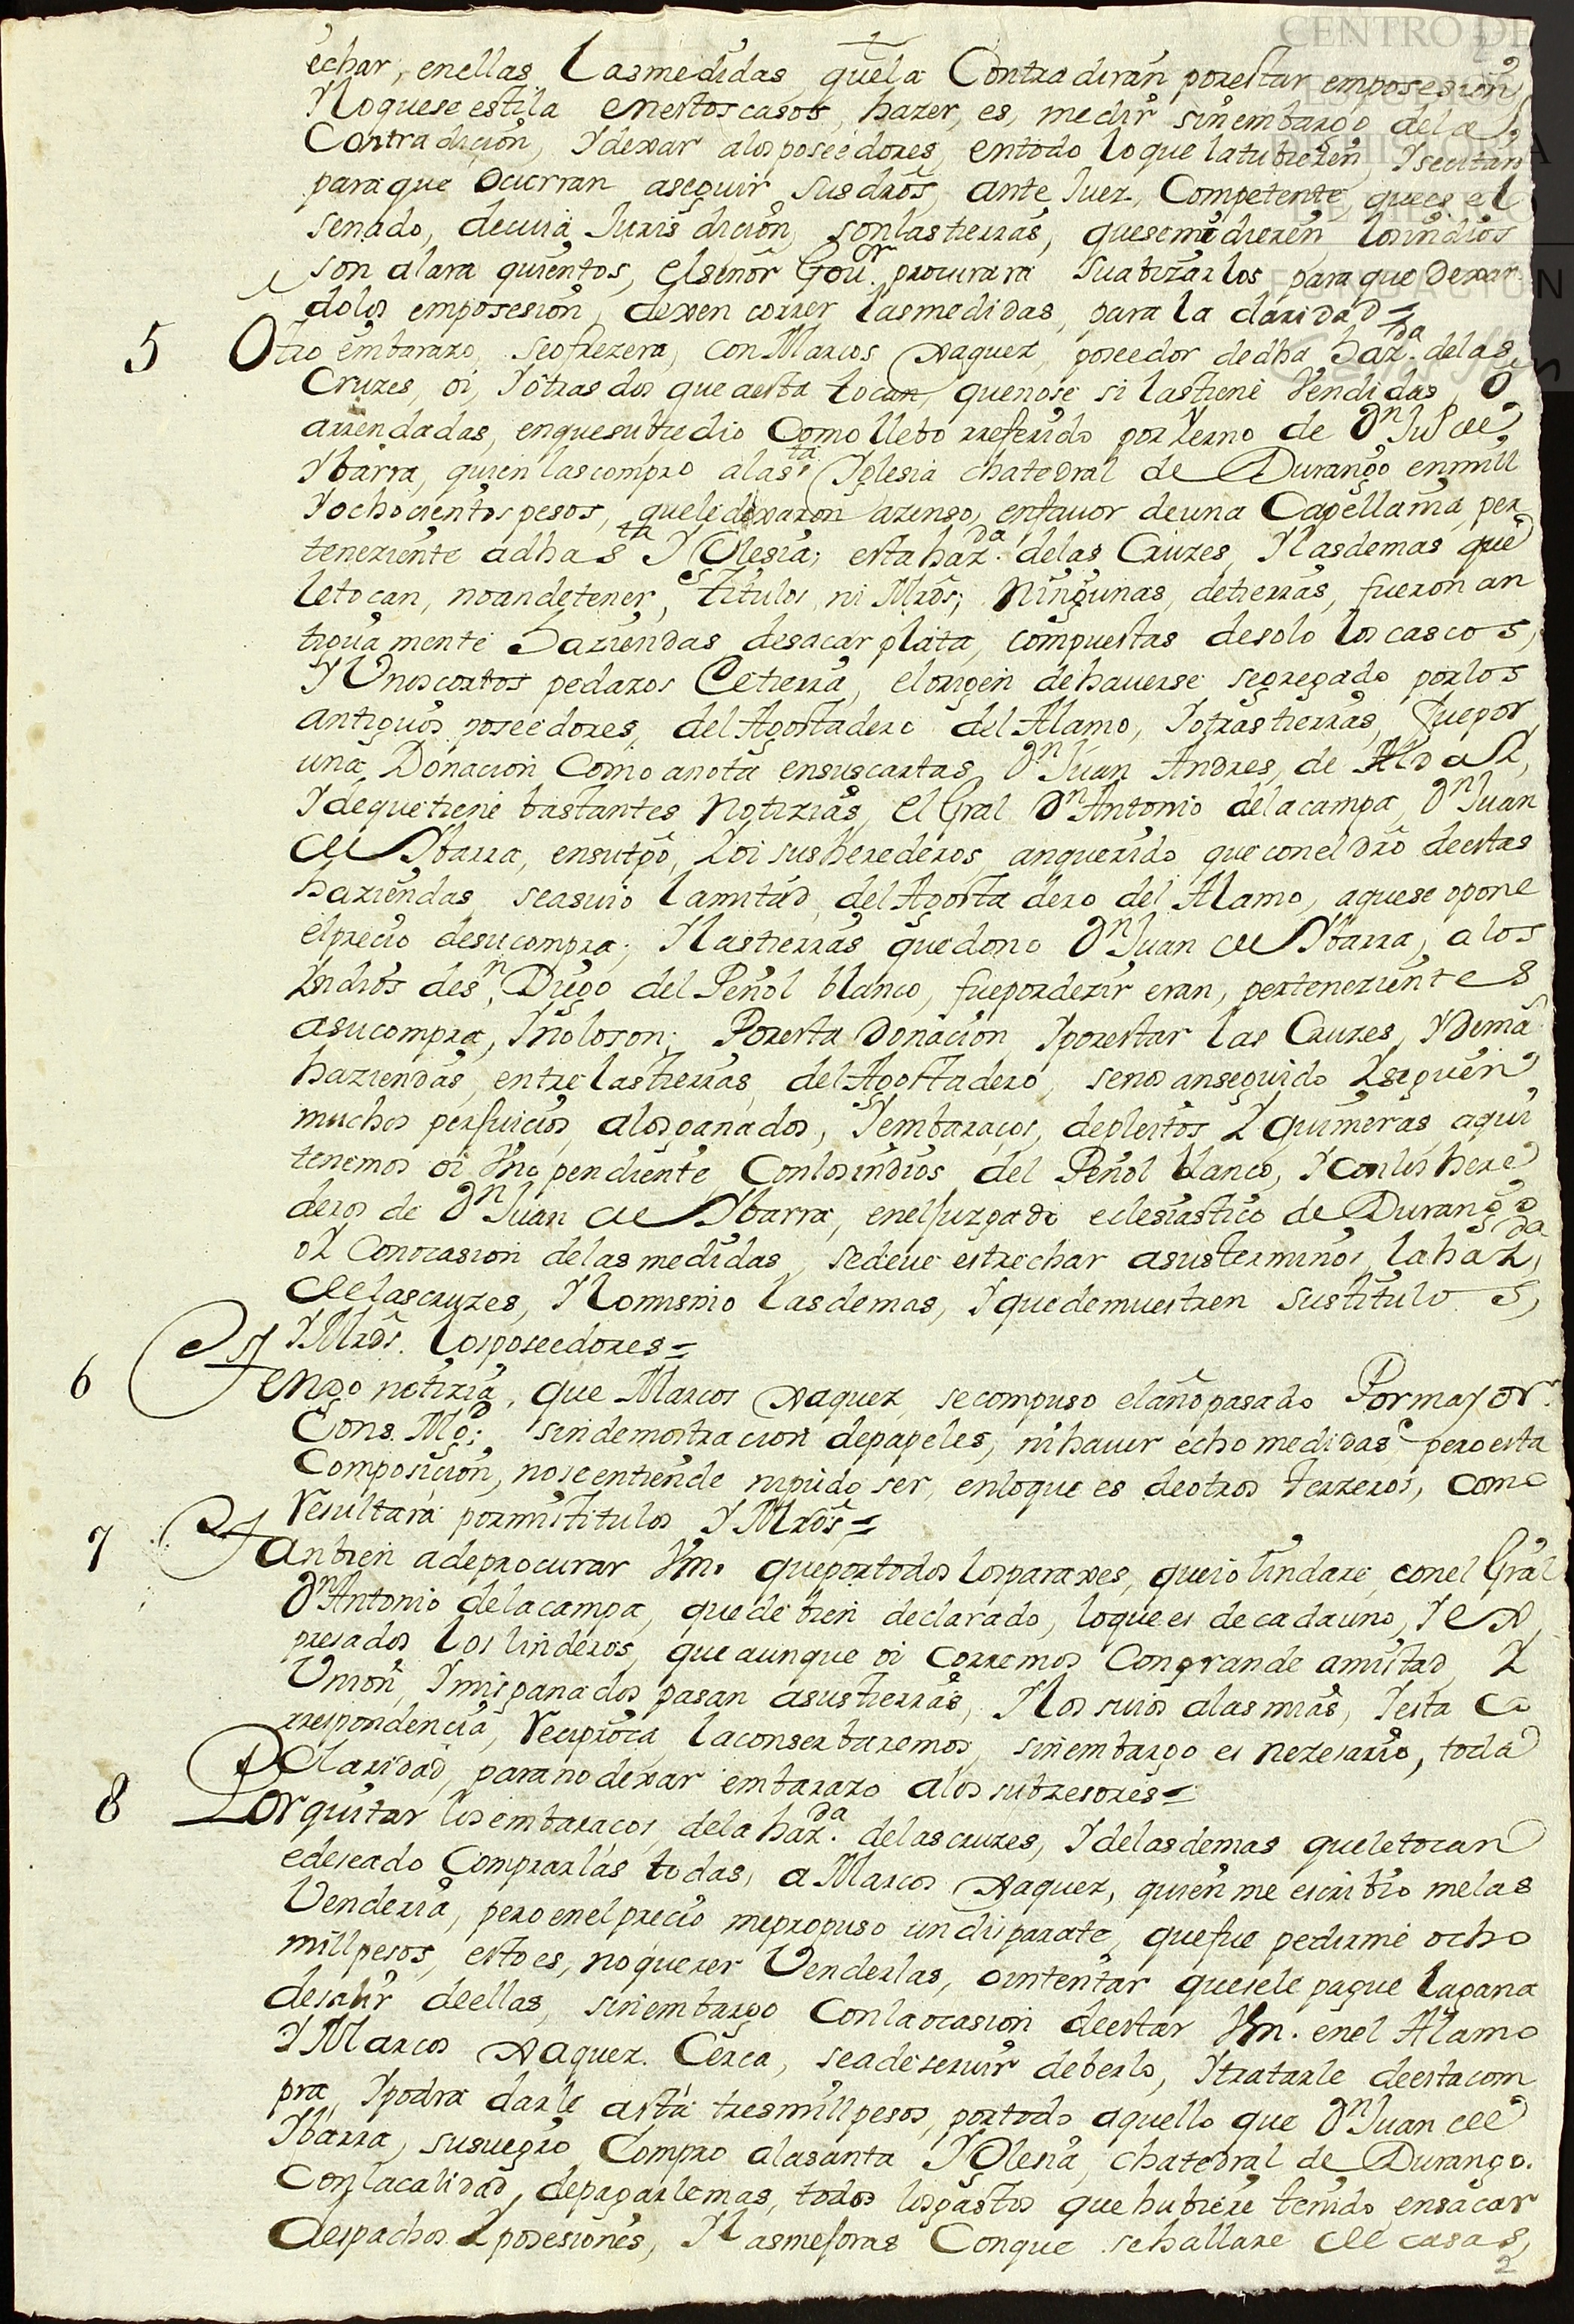 CENTRO DE
ESTUDIOS
DE HISTORIA
DE MÉXICO
FUNDACIÓN
echar, enellas Lasmedidas quela Contradiran porestar emposesion
Yloquese estila enestos casos hazer, es, medir sinembargo dela
Contradicion, Ydexar alosposeedores, entodo loque latubieren, Ysecitan
paraque Ocurran aseguir susdros, ante Juez, Competente quees el
senado, decuia Jurisdicion, sonlastierras, quesemidieren losindios
son alara quientos, elseñor Gour. procurara suabizarlos paraque Dexan
dolos emposesion, dexen correr lasmedidas, para la claridad=
5 Otro embarazo, seofrezera, con Marcos Vaquez, poseedor dedha hazda. delas
Cruzes, oi, Yotras dos que aesta tocan, quenose si lastiene Vendidas, O
arrendadas, enquesubzedio Como llebo rreferido por Yerno de Dn Ju de
Ybarra, quien lascompro alasta Yglesia chatedral de Durango enmill
Yochocientos pesos, quele dexaron azenso, enfauor deuna Capellania, per
teneziente adha sta YGlesia; esta hazda. delas Cruzes, Ylasdemas que
letocan, noandetener, titulos, ni Mrds; ningunas, detierras, fueron an
tigua mente haziendas desacar plata, compuestas desolo los cascos,
YUnoscortos pedazos Detierra, elorigen dehauerse segregado porlos
antiguos poseedores, del Agostadero del Alamo, Yotrastierras, fuepor
una Donacion Como anota ensuscartas Dn Juan Andres, de
Ydequetiene bastantes Notizias, el Gral Dn Antonio delacampa, Dn Juan
de Ybarra, ensutpo, Yoi susherederos anquerido que conel dro deestas
haziendas seasuio lamitad, del Agostadero del Alamo, aquese opone
elprecio desucompra; Ylastierras quedono Dn Juan de Ybarra, alos
Yndios desn. Diego del Peñol blanco, fuepordezir eran, pertenezientes
asucompra, Ynoloson; Poresta Donacion Yporestar las Cruzes, Ydema
haziendas, entre lastierras, del Agostadero, senos anseguido Ysiguen
muchos perjuicios, alosganados, Yembarazos, depleitos Y quimeras, aqui
tenemos oi Vno pendiente, Conlosindios del Peñol blanco, Yconlos here
deros de Dn Juan de Ybarra, eneljuzgado eclesiastico de Durango
oY Conocasion delas medidas, sedeue estrechar asusterminos, lahazda,
delascruzes, Ylomismo lasdemas, Yquedemuestren sustitulos,
YMrds. losposeedores=
6 Tengo notizia, que Marcos Vaquez, secompuso elañopasado Pormayor
Cons. Md; sindemostracion depapeles, nihauer echo medidas, peroesta
Composicion, noseentiende nipudo ser, enloque es deotros terzeros, como
Resultara pormistitulos YMrds=
7 Tanbien adeprocurar Vm. queportodos losparaxes, queio lindare, conel Gral
Dn Antonio delacampa, quede bien declarado, loquees decadauno, Yex
presados los linderos, queaunque oi corremos Congrande amistad, Y
Union, Ymisganados pasan asustierras, Ylos suios alasmias, Yesta co
rrespondencia, Reciproca, laconserbaremos, sinembargo es nezesario, toda
Claridad, paranodexar embarazo alos subzesores=
8 Porquitar losembarazos, delahazda. delascruzes, Ydelasdemas queletocan
edeseado Comprarlas todas, a Marcos Vaquez, quien me escribio melas
Venderia, pero enelprecio mepropuso undisparate, quefue pedirme ocho
millpesos, estoes, noquerer Venderlas, ointentar quesele pague lagana
desalir deellas, sinembargo Conlaocasion deestar Vm. enel Alamo
YMarcos Vaquez. Cerca, seadeseruir deberlo, Ytratarle deestacom
pra, Ypodra darle asta tresmillpesos, portodo aquello que Dn Juan de
Ybarra, susuegro Compro alasanta YGlesia, chatedral de Durango.
Conlacalidad, depagarlemas, todos losgastos que hubiere tenido ensacar
despachos Yposesiones, Ylasmejoras Conque sehallare de casas,
2